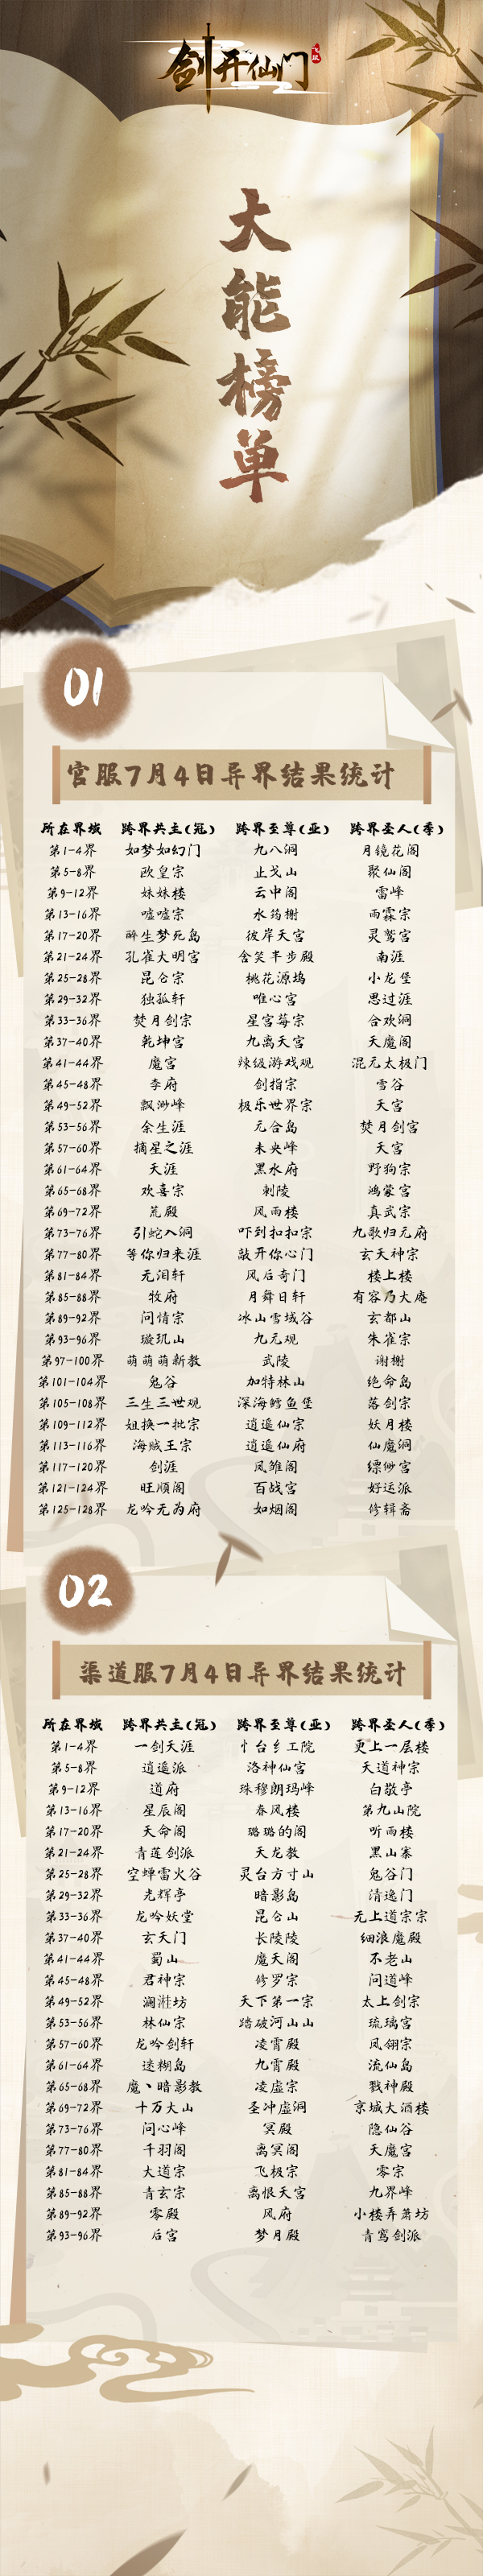 剑开仙门
大能榜单
01
官服7月4日异界结果统计
所在界域 跨界共主(冠) 跨界至尊(亚) 跨界圣人(季)
第1-4界 如梦如幻门 九八洞 月镜花阁
第5-8界 欧皇宗 止戈山 聚仙阁
第9-12界 妹妹楼 云中阁 雷峰
第13-16界 嘘嘘宗 水筠榭 雨霖宗
第17-20界 醉生梦死岛 彼岸天宫 灵鹫宫
第21-24界 孔雀大明宫 含笑半步殿 南涯
第25-28界 昆仑宗 桃花源坞 小龙堡
第29-32界 独孤轩 唯心宫 思过涯
第33-36界 焚月剑宗 星宫莓宗 合欢洞
第37-40界 乾坤宫 九离天宫 天魔阁
第41-44界 魔宫 辣级游戏观 混元太极门
第45-48界 李府 剑指宗 雪谷
第49-52界 飘渺峰 极乐世界宗 天宫
第53-56界 余生涯 元合岛 焚月剑宫
第57-60界 摘星之涯 未央峰 天宫
第61-64界 天涯 黑水府 野狗宗
第65-68界 欢喜宗 刺陵 鸿蒙宫
第69-72界 荒殿 风雨楼 真武宗
第73-76界 引蛇入洞 吓到扣扣宗 九歌归元府
第77-80界 等你归来涯 敲开你心门 玄天神宗
第81-84界 无泪轩 风后奇门 楼上楼
第85-88界 牧府 月舞日轩 有容乃大庵
第89-92界 问情宗 冰山雪域谷 玄都山
第93-96界 璇玑山 九元观 朱雀宗
第97-100界 萌萌萌新教 武陵 谢榭
第101-104界 鬼谷 加特林山 绝命岛
第105-108界 三生三世观 深海鳕鱼堡 落剑宗
第109-112界 姐换一批宗 逍遥仙宗 妖月楼
第113-116界 海贼王宗 逍遥仙府 仙魔洞
第117-120界 剑涯 凤雏阁 缥缈宫
第121-124界 旺顺阁 百战宫 好运派
第125-128界 龙吟无为府 如烟阁 修辑斋
02
渠道服7月4日异界结果统计
所在界域 跨界共主(冠) 跨界至尊(亚) 跨界圣人(季)
第1-4界 一剑天涯 忄台纟工院 更上一层楼
第5-8界 逍遥派 洛神仙宫 天道神宗
第9-12界 道府 珠穆朗玛峰 白敬亭
第13-16界 星辰阁 春风楼 第九山院
第17-20界 天命阁 璐璐的阁 听雨楼
第21-24界 青莲剑派 天龙教 黑山寨
第25-28界 空蝉雷火谷 灵台方寸山 鬼谷门
第29-32界 光辉亭 暗影岛 清逸门
第33-36界 龙吟妖堂 昆仑山 无上道宗宗
第37-40界 玄天门 长陵陵 细浪魔殿
第41-44界 蜀山 魔天阁 不老山
第45-48界 君神宗 修罗宗 问道峰
第49-52界 坊 天下第一宗 太上剑宗
第53-56界 林仙宗 踏破河山山 琉璃宫
第57-60界 龙吟剑轩 凌霄殿 凤翎宗
第61-64界 迷糊岛 九霄殿 流仙岛
第65-68界 魔丶暗影教 凌虚宗 戮神殿
第69-72界 十万大山 圣冲虚洞 京城大酒楼
第73-76界 问心峰 冥殿 隐仙谷
第77-80界 千羽阁 离冥阁 天魔宫
第81-84界 大道宗 飞极宗 零宗
第85-88界 青玄宗 离恨天宫 九界峰
第89-92界 零殿 风府 小楼弄萧坊
第93-96界 后宫 梦月殿 青鸾剑派